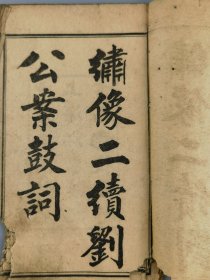 繡像二續劉
公案鼓詞